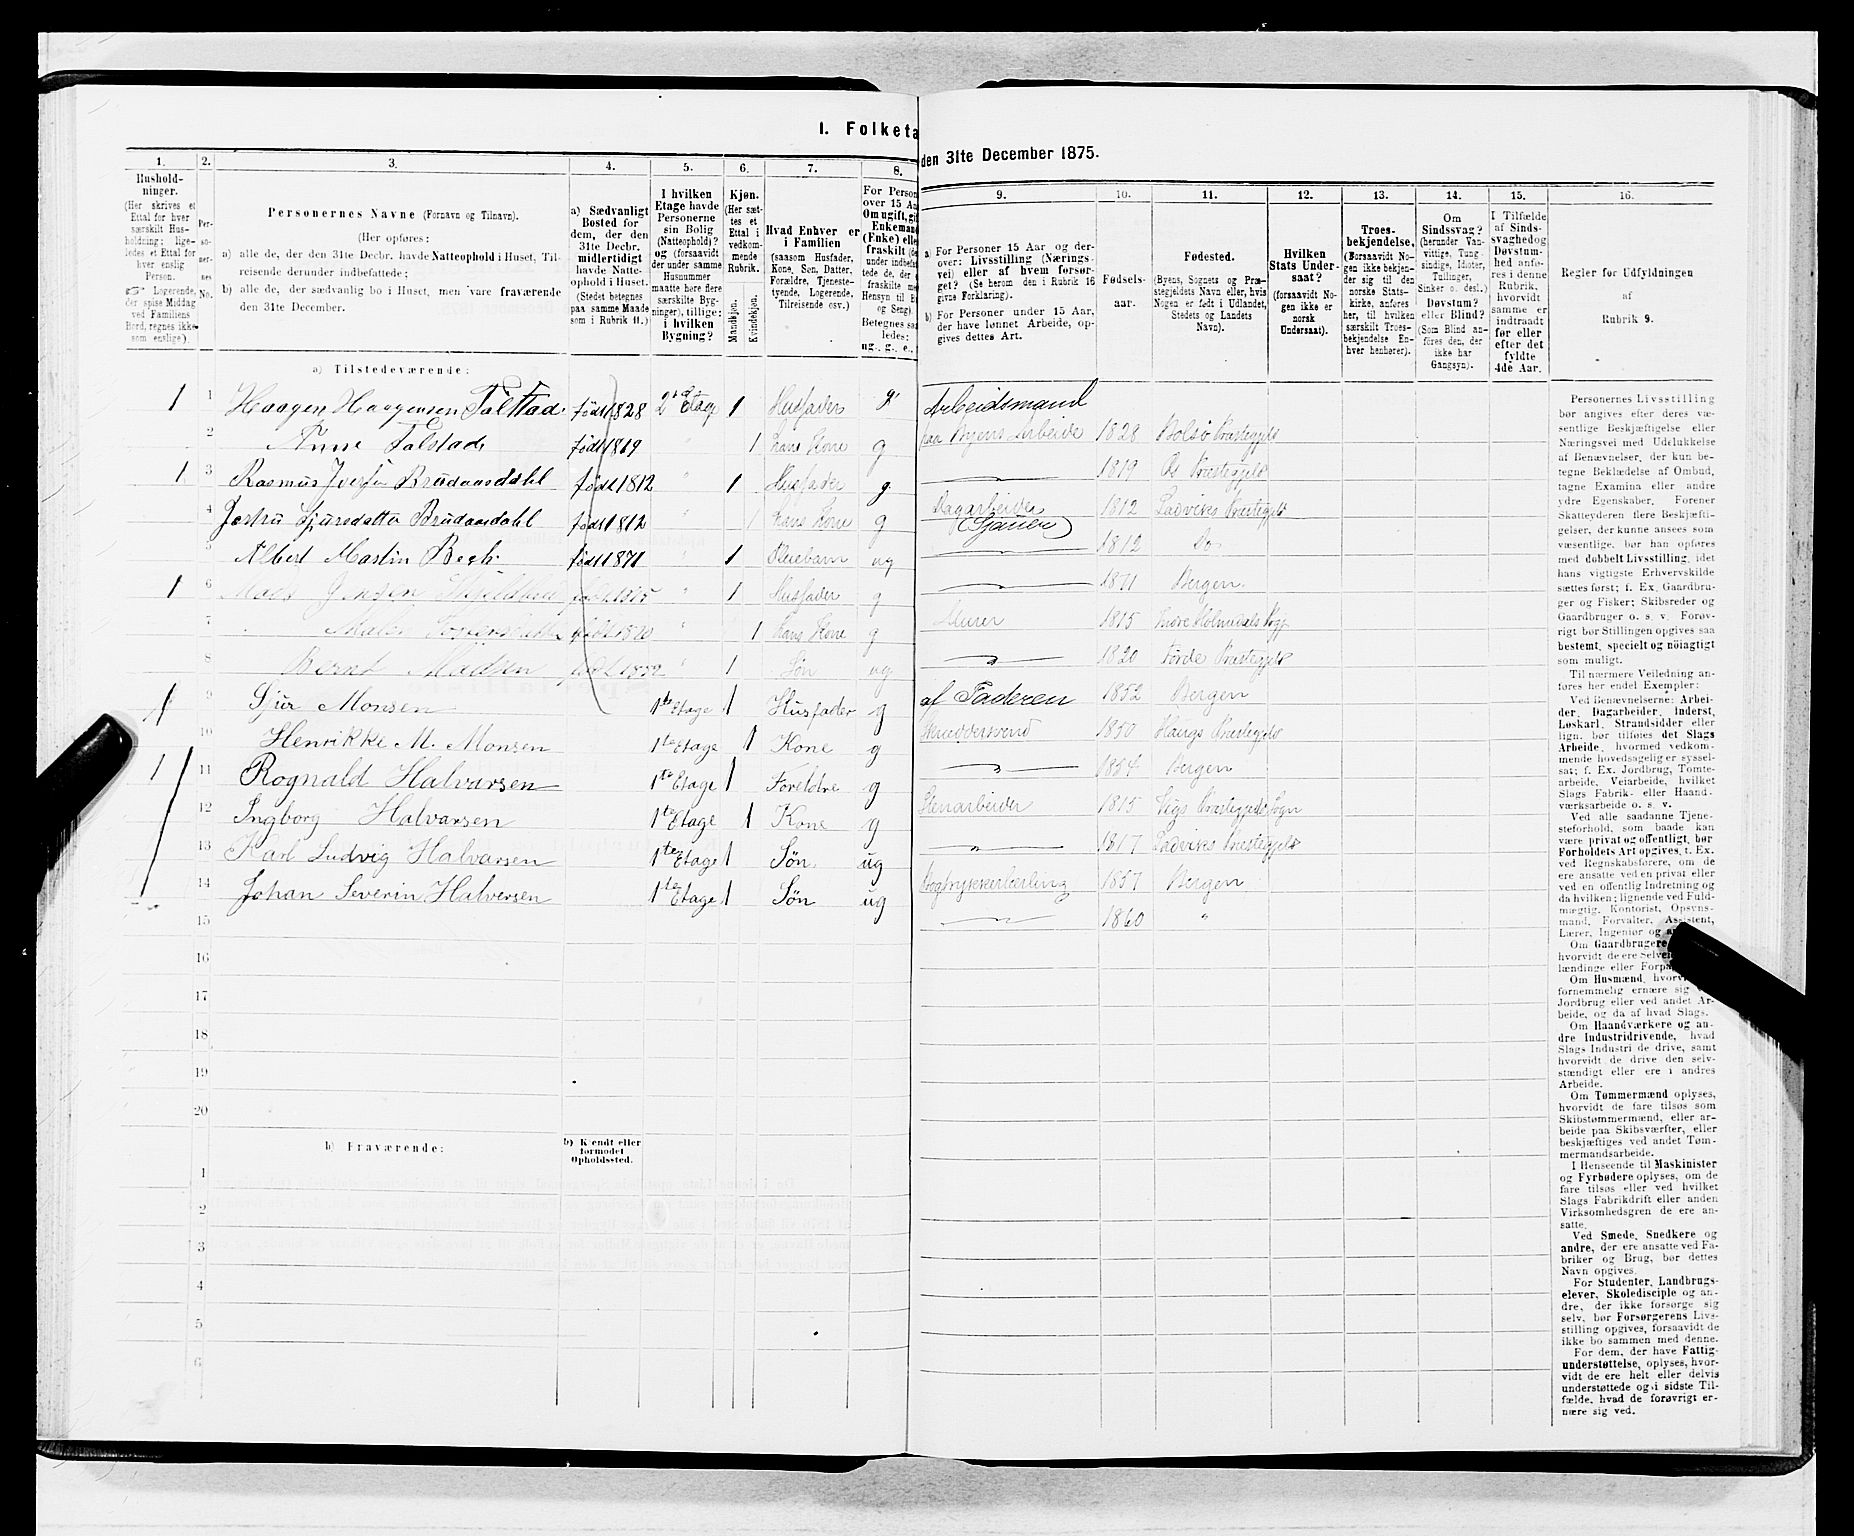 I. Folketa
den 31te December 1875.
1. 2. 3. 4. 5. 6. 7. 8.
Hushold-
ninger.
(Her skrives et
Ettal for hver
særskilt Hus-
holdning; lige-
ledes et Ettal for
hver enslig
Person.
Logerende,
der spise Middag
ved Familiens
Bord, regnes ikke
som enslige).
Per-
so-
ner-
nes
No.
Personernes Navne (Fornavn og Tilnavn).
(Her opføres:
a) alle de, der den 31te Decbr. havde Natteophold i Huset, Til-
reisende derunder indbefattede;
b) alle de, der sædvanlig bo i Huset, men vare fraværende
den 31te December.
a) Sædvanligt
Bosted for
dem, der den
31te Decbr.
midlertidigt
havde Natte-
ophold i Huset.
(Stedet betegnes
paa samme Maade
som i Rubrik 11.)
I hvilken
Etage havde
Personerne
sin Bolig
(Natteophold)?
og (forsaavidt
der under samme
Husnummer
maatte høre flere
særskilte Byg-
ninger), tillige:
i hvilken
Bygning?
Kjøn.
(Her sæt-
tes et
Ettal i
vedkom-
mende
Rubrik.
Mandkjøn.
Kvindekjøn.
Hvad Enhver er
i Familien
(saasom Husfader,
Kone, Søn, Datter,
Forældre, Tjeneste-
tyende, Logerende,
Tilreisende osv.)
For Person
over 15 Aa
Om ugift, gif
Enkemand
(Enke) elle
fraskilt (de
under indbefat
tede de, der e
fraskilte m
Hensyn til B
og Seng).
Betegnes saa
ledes:
ug., g., e.,
a) Tilstedeværende:
1 1 Haagen Haagensen Talstad født 1828 2den Etage 1 Husfader g
2 Anne Talstad født 1819 " 1 hans Kone g
1 3 Rasmus Iversen Brudaasdahl født 1812 " 1 Husfader g
4 Sjursdatter Brudaasdahl født 1812 " 1 hans Kone g
5 Albert Martin født 1871 " 1 Pleiebarn ug
1 6 Mads født 1815 " 1 Husfader g
7 født 1820 1 hans Kone g
8 Bernt Madsen født 1852 " 1 Søn ug
1 9 Sjur Monsen 1ste Etage 1 Husfader g
10 Henrikke M. Monsen 1ste Etage 1 Kone g
1 11 Rognald Halvarsen 1ste Etage 1 Foreldre g
12 Ingborg Halvarsen 1ste Etage 1 Kone g
13 Karl Ludvig Halvarsen 1ste Etage 1 Søn ug
14 Johan Severin Halversen 1ste Etage 1 Søn ug
15
16
17
18
19
20
b) Fraværende:
b) Kjendt eller
formodet
Opholdssted.
1
2
3
4
5
6
9. 10. 11. 12. 13. 14. 15. 16.
a) For Personer 15 Aar og der-
over: Livsstilling (Nærings-
vei) eller af hvem forsør-
get? (Se herom den i Rubrik 16
givne Forklaring).
b) For Personer under 15 Aar,
der have lønnet Arbeide, op-
gives dettes Art.
Fødsels-
aar.
Fødested.
(Byens, Sognets og Præ-
stegjeldets Navn eller, hvis
Nogen er født i Udlandet,
Stedets og Landets
Navn).
Hvilken
Stats Under-
saat?
(forsaavidt No-
gen ikke er
norsk
Undersaat).
Troes-
bekjendelse,
(forsaavidt No-
gen ikke bekjen-
der sig til den
norske Stats-
kirke, anføres
her, til hvilken
særskilt Troes-
bekjendelse En-
hver henhører).
Om
Sindssvag?
(herunder Van-
vittige, Tung-
sindige, Idioter,
Tullinger,
Sinker o. desl.)
Døvstum?
eller Blind?
(Som Blind an-
føres den, der
ikke har
Gangsyn).
I Tilfælde
af Sinds-
svaghed og
Døvstum-
hed anfø-
res i denne
Rubrik,
hvorvidt
samme er
indtraadt
før eller
efter det
fyldte
4de Aar.
Regler for Udfyldningen
af
Rubrik 9.
Arbeidsmand
paa Byens Arbeide 1828 Bolsø Præstegjeld
1819 Os Præstegjeld
Dagarbeider 1812 Ladviks Præstegjeld
(Sjauer) 1812 Do
1871 Bergen
Murer 1815 Indre Holmedals Sogn
1820 Førde Præstegjeld
af Faderen 1852 Bergen
Skreddersvend 1850 Haugs Præstegjeld
1854 Bergen
Stenarbeider 1815 Præstegjeld Sogn
" 1817 Ladviks Præstegjeld
Bogtrykkerlærling 1857 Bergen
1860 "
Personernes Livsstilling
bør angives efter deres væ-
sentlige Beskjæftigelse eller
Næringsvei med Udelukkelse
af Benævnelser, der kun be-
tegne Beklædelse af Ombud,
tagne Examina eller andre
ydre Egenskaber. Forener
Skatteyderen flere Beskjæfti-
gelser, der kunne ansees som
væsentlige, bør han opføres
med dobbelt Livsstilling, idet
hans vigtigste Erhvervskilde
sættes først; f. Ex. Gaardbru-
ger og Fisker; Skibsreder og
Gaardbruger o. s. v. Forøv-
rigt bør Stillingen opgives saa
bestemt, specielt og nøiagtigt
som muligt.
Til nærmere Veiledning an-
føres her endel Exempler:
Ved Benævnelserne: Arbei-
der, Dagarbeider, Inderst,
Løskarl, Strandsidder eller
lign. bør tilføies det Slags
Arbeide, hvormed vedkom-
mende hovedsagelig er syssel-
sat; f. Ex. Jordbrug, Tomte-
arbeide, Veiarbeide, hvilket
Slags Fabrik- eller Haand-
værksarbeide o. s. v.
Ved alle saadanne Tjene-
steforhold, som baade kan
være privat og offentligt, bør
Forholdets Art opgives, t. Ex.
ved Regnskabsførere, om de
ere ansatte ved en privat eller
ved en offentlig Indretning og
da hvilken; lignende ved Fuld-
mægtig, Kontorist, Opsyns-
mand, Forvalter, Assistent,
Lærer, Ingeniør og
Om Gaardbrugere
hvorvidt de ere Selvei
lændinge eller Forpa
Om Husmænd, hvorvi
fornemmelig ernære sig
Jordbrug eller ved andet Ar-
beide, og da af hvad Slags.
Om Haandværkere og an-
dre Industridrivende, hvad
Slags Industri de drive, samt
hvorvidt de drive den selv-
stændigt eller ere i andres
Arbeide.
Om Tømmermænd oplyses,
hvorvidt de fare tilsøs som
Skibstømmermænd, eller ar-
beide paa Skibsværfter, eller
beskjæftiges ved andet Tøm-
mermandsarbeide.
I Henseende til Maskinister
og Fyrbødere oplyses, om de
fare tilsøs eller ved hvilket
Slags Fabrikdrift eller anden
Virksomhedsgren de ere an-
satte.
Ved Smede, Snedkere og
andre, der ere ansatte ved Fa-
briker og Brug, bør dettes
Navn opgives.
For Studenter, Landbrugs-
elever, Skoledisciple og an-
dre, der ikke forsørge sig
selv, bør Forsørgerens Livs-
stilling opgives, forsaavidt de
ikke bo sammen med denne.
For dem, der have Fattig-
understøttelse, oplyses, hvor-
vidt de ere helt eller delvis
understøttede og i sidste Til-
fælde, hvad de forøvrigt er-
nære sig ved.